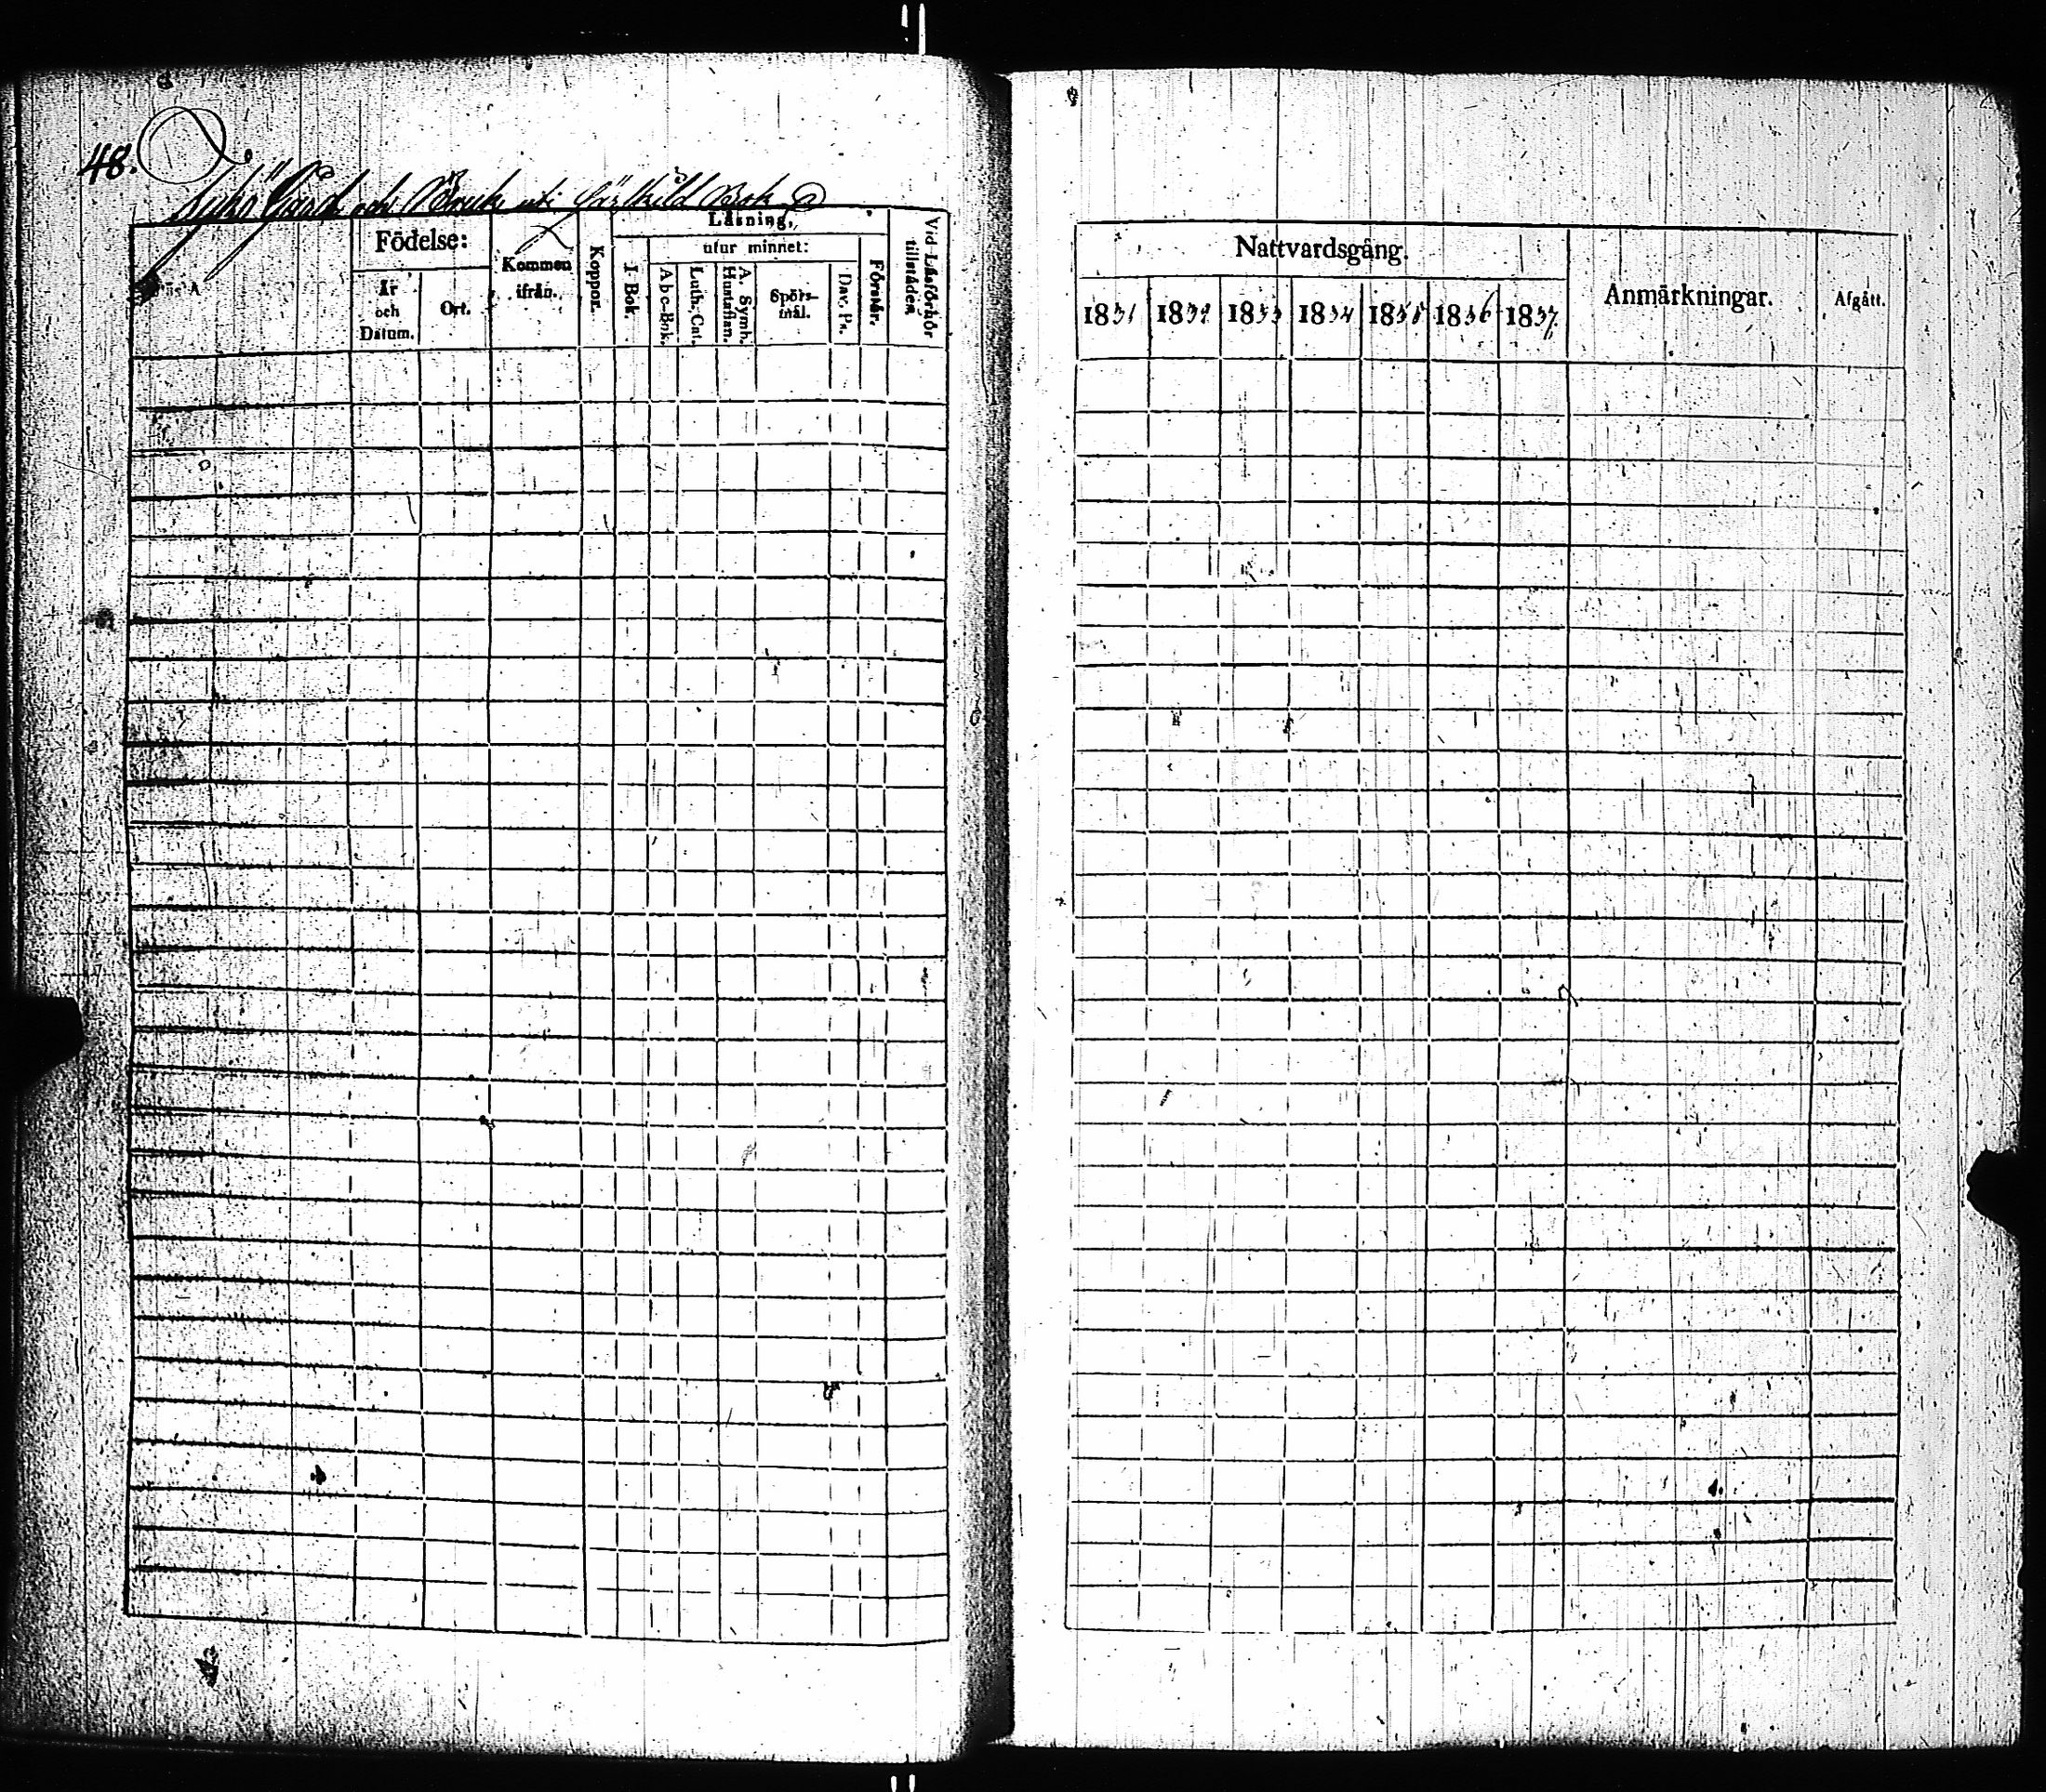 48.
Gård och Bruk uti särskild Bok
Födelse:
År och Datum.
Ort.
Kommen ifrån.
Koppor.
Läsning,
I Bok.
utur minnet:
Abc-Bok.
Luth. Cat.
A. Symb. Hustaflan.
Spörs-mål.
Dav. Ps.
Förstår.
Vid Läsförhör tillstädes
Nattvardsgång.
1831 1832 1833 1834 1835 1836 1837.
Anmärkningar.
Afgått.